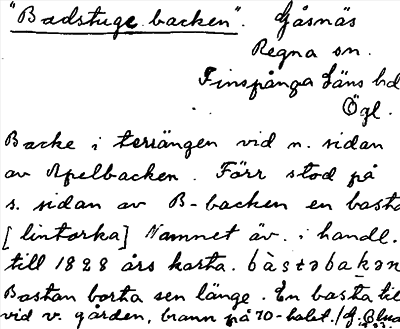 "Badstuge backen". Gåsnäs
Regna sn.
Finspånga läns hd
Ögl.
Backe i terrängen vid n. sidan
av Apelbacken. Förr stod på
s. sidan av B-backen en basta
[lintorka] Namnet äv. i handl.
till 1828 års karta. bàstəbakən
Bastan borta sen länge. En basta til
vid v. gården, brann på 70-talet. /G.